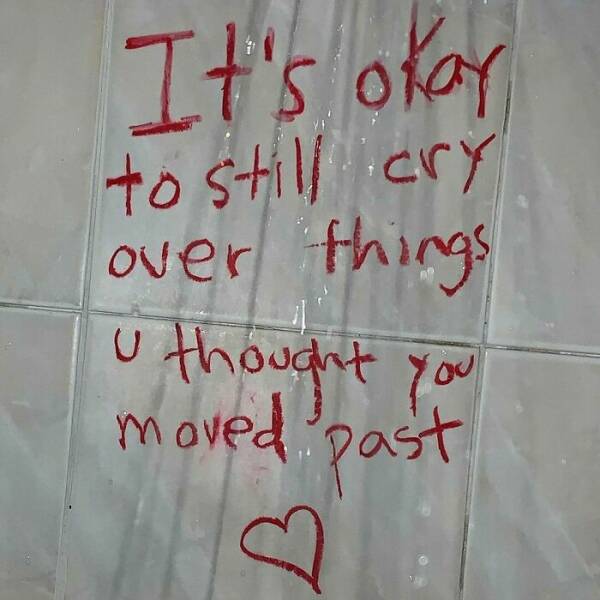 It's okay
to still cry
over things
u thought you
moved past